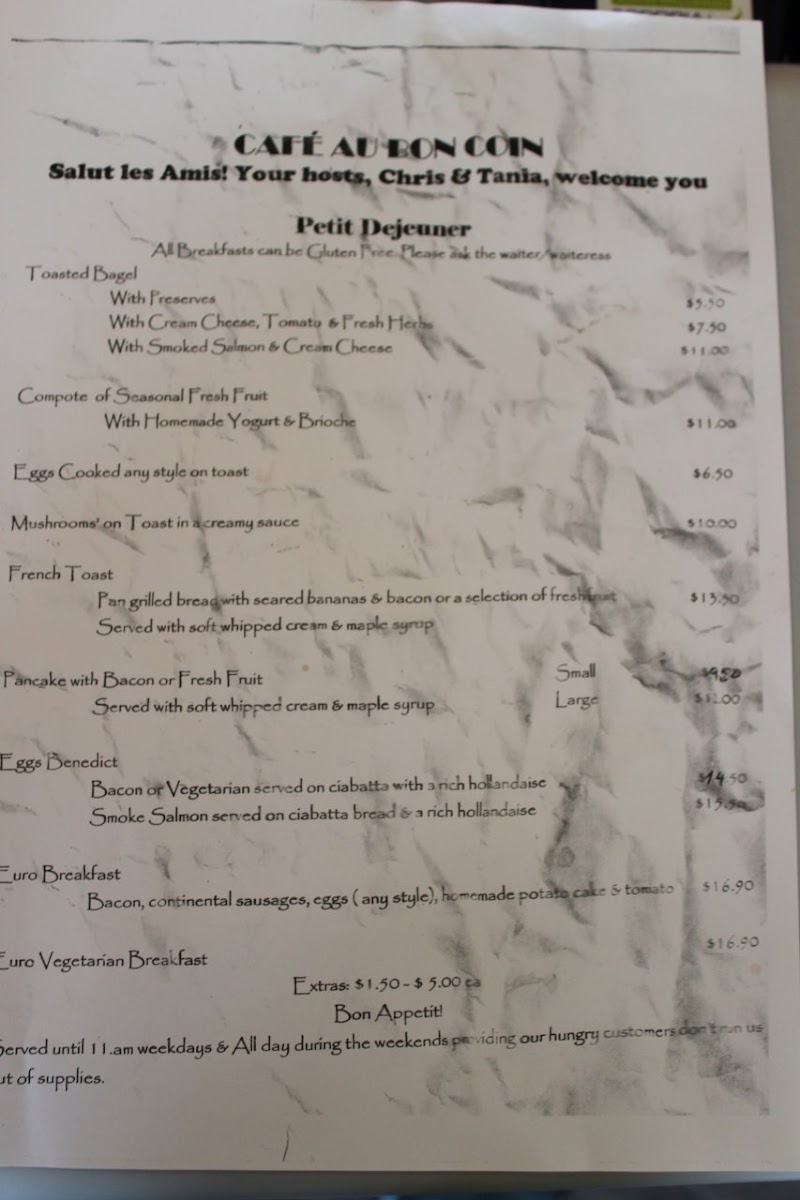 CAFÉ AU BON COIN
Salut les Amis! Your hosts, Chris & Tania, welcome you
Petit Dejeuner
All Breakfasts can be Gluten Free. Please ask the waiter/waiteress
Toasted Bagel
With Preserves $5.50
With Cream Cheese, Tomato & Fresh Herbs $7.50
With Smoked Salmon & Cream Cheese $11.00
Compote of Seasonal Fresh Fruit
With Homemade Yogurt & Brioche $11.00
Eggs Cooked any style on toast $6.50
Mushrooms' on Toast in a creamy sauce $10.00
French Toast
Pan grilled bread with seared bananas & bacon or a selection of fresh fruit $13.50
Served with soft whipped cream & maple syrup
Pancake with Bacon or Fresh Fruit Small $9.50
Served with soft whipped cream & maple syrup Large
Eggs Benedict
Bacon or Vegetarian served on ciabatta with a rich hollandaise $14.50
Smoke Salmon served on ciabatta bread & a rich hollandaise $15.50
Euro Breakfast
Bacon, continental sausages, eggs ( any style), homemade potato cake & tomato $16.90
$16.90
Euro Vegetarian Breakfast
Extras: $1.50 - $ 5.00 ea
Bon Appetit!
Served until 11.am weekdays & All day during the weekends providing our hungry customers don't run us
ut of supplies.